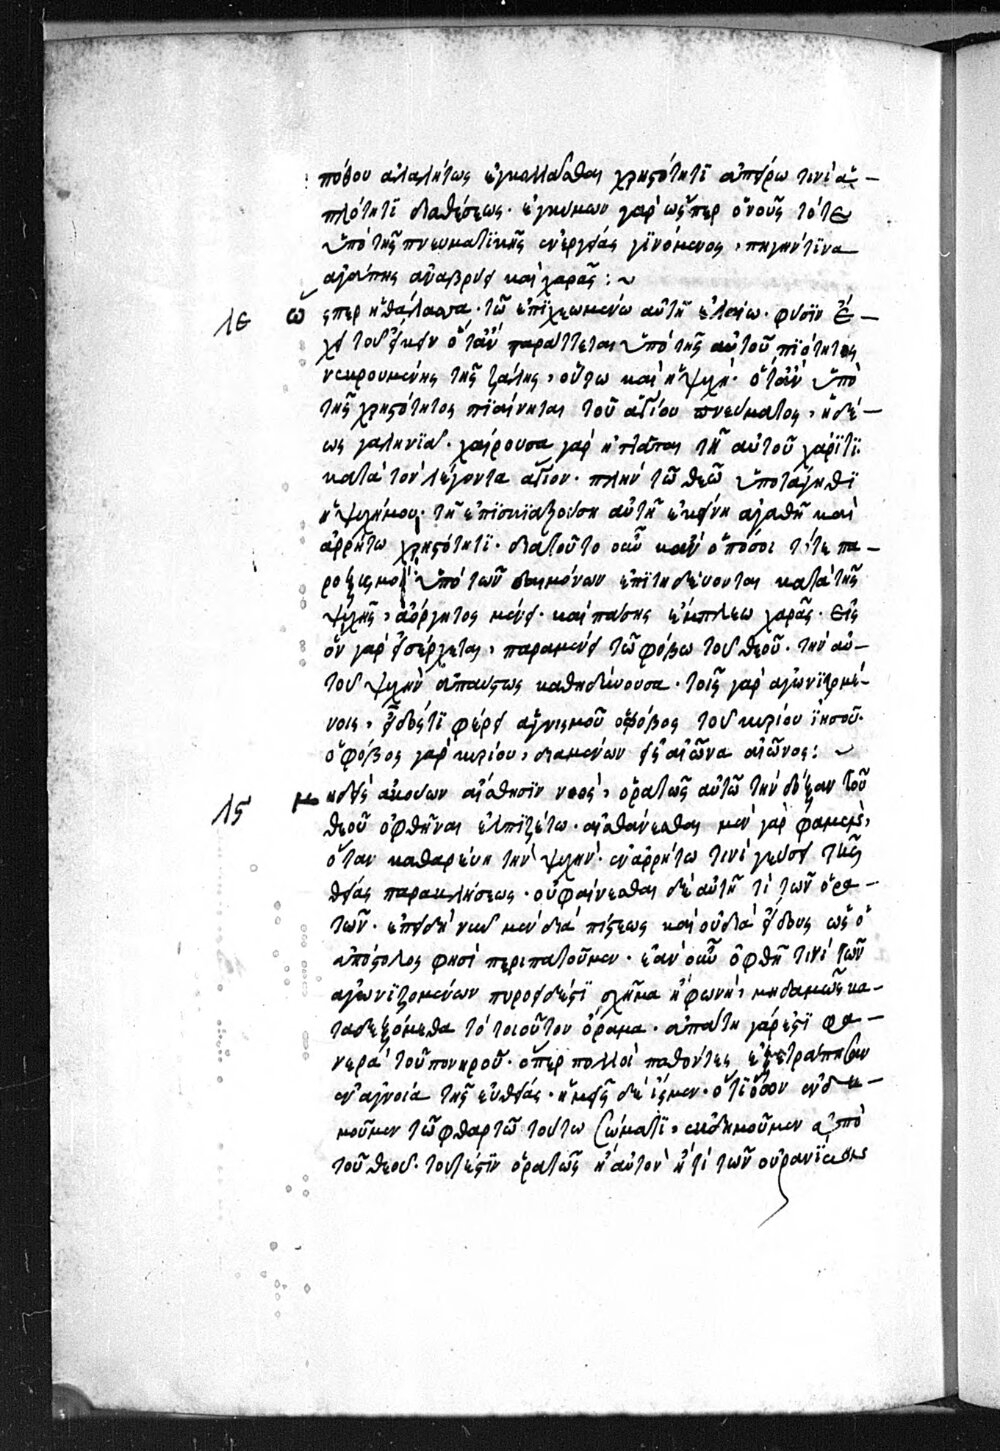 πόθου ἀλαλήτως ἐγκολλᾶσθαι χρηστότητι ἀπείρω τινὶ ἁ-
πλότητι διαθέσεως. ἐγκύμων γὰρ ὥσπερ ὁ νοῦς τότε
ὑπὸ τῆς πνευματικῆς ἐνεργείας γϊνόμενος, πηγήν τϊνα
ἀγάπης ἀναβρύει καὶ χαρᾶς: ~
ΛΕ ὥσπερ ἡ θάλασσα. τῶ ἐπϊχεωμένω αὐτῆ ἐλαίω. φύσϊν ἔ-
χει τοῦ εἴκειν ὅταν ταράττεται ὑπὸ τῆς αὐτοῦ πϊότητος
νεκρουμένης τῆς ζάλης, οὕτω καὶ ἡ ψυχή. ὅταν ὑπὸ
τῆς χρηστότητος πϊαίνηται τοῦ ἁγίου πνεύματος, ἡδέ-
ως γαληνϊᾶ. χαίρουσα γὰρ ἡττᾶται τῆ αὐτοῦ χάρϊτϊ.
κατὰ τὸν λέγοντα ἅγιον. πλὴν τῶ θεῶ ὑποτάγηθϊ
ἡ ψυχή μου. τῆ ἐπϊσκϊαζούση αὐτῆ ἐκείνη ἀγαθῆ καὶ
ἀρρήτω χρηστότητϊ. διατοῦτο οὖν κἂν ὁπόσοι τότε πα-
ροξισμοὶ ὑπὸ τῶν δαιμόνων ἐπϊτηδεύονται κατὰ τῆς
ψυχῆς, ἀόργητος μένει. καὶ πάσης ἔμπλεω χαρᾶς. εἰς
ὃν γὰρ εἰσέρχεται, παραμένει τῶ φόβω τοῦ θεοῦ. τὴν αὐ-
τοῦ ψυχὴν ἀπαύστως καθηδύνουσα. τοῖς γὰρ ἀγωνϊζομέ-
νοις, εἶδός τϊ φέρει ἁγνισμοῦ ὁ φόβος τοῦ κυρίου ϊησοῦ.
ὁ φόβος γὰρ κυρίου, διαμένων εἰς αἰῶνα αἰῶνος: ~
Λϛ μηδεὶς ἀκούων αἴσθησϊν νοὸς, ὁρατῶς αὐτῶ τὴν δόξαν τοῦ
θεοῦ ὀφθῆναι ἐλπιζέτω. αἰσθάνεσθαι μὲν γὰρ φαμὲν,
ὅταν καθαρεύη τὴν ψυχήν. ἐν ἀρρήτω τινὶ γεύσει τῆς
θείας παρακλήσεως. οὐ φαίνεσθαι δὲ αὐτῆ τί τῶν ὁρα-
τῶν. ἐπειδὴ νῦν μὲν διὰ πίστεως καὶ οὐ διὰ εἴδους ὡς ὁ
ἀπόστολος φησὶ περιπατοῦμεν. ἐὰν οὖν ὀφθῆ τινὶ τῶν
ἀγωνϊζομένων πυροειδέςϊ σχῆμα ἢ φωνή, μηδαμῶς κα-
ταδεξόμεθα τὸ τοιοῦτον ὅραμα. ἀπάτη γάρ ἐστϊ φα-
νερὰ τοῦ πονηροῦ. ὅπερ πολλοὶ παθόντες ἐξετράπησαν
ἐν ἀγνοία τῆς εὐθείας. ἡμεῖς δὲ ἴσμεν. ὅτι ὅσον ἐνδη-
μοῦμεν τῶ φθαρτῶ τούτω σώματϊ, ἐκδημοῦμεν ἀπὸ
τοῦ θεοῦ. τουτέστϊν ὁρατῶς ἢ αὐτὸν ἤ τι τῶν οὐρανϊων